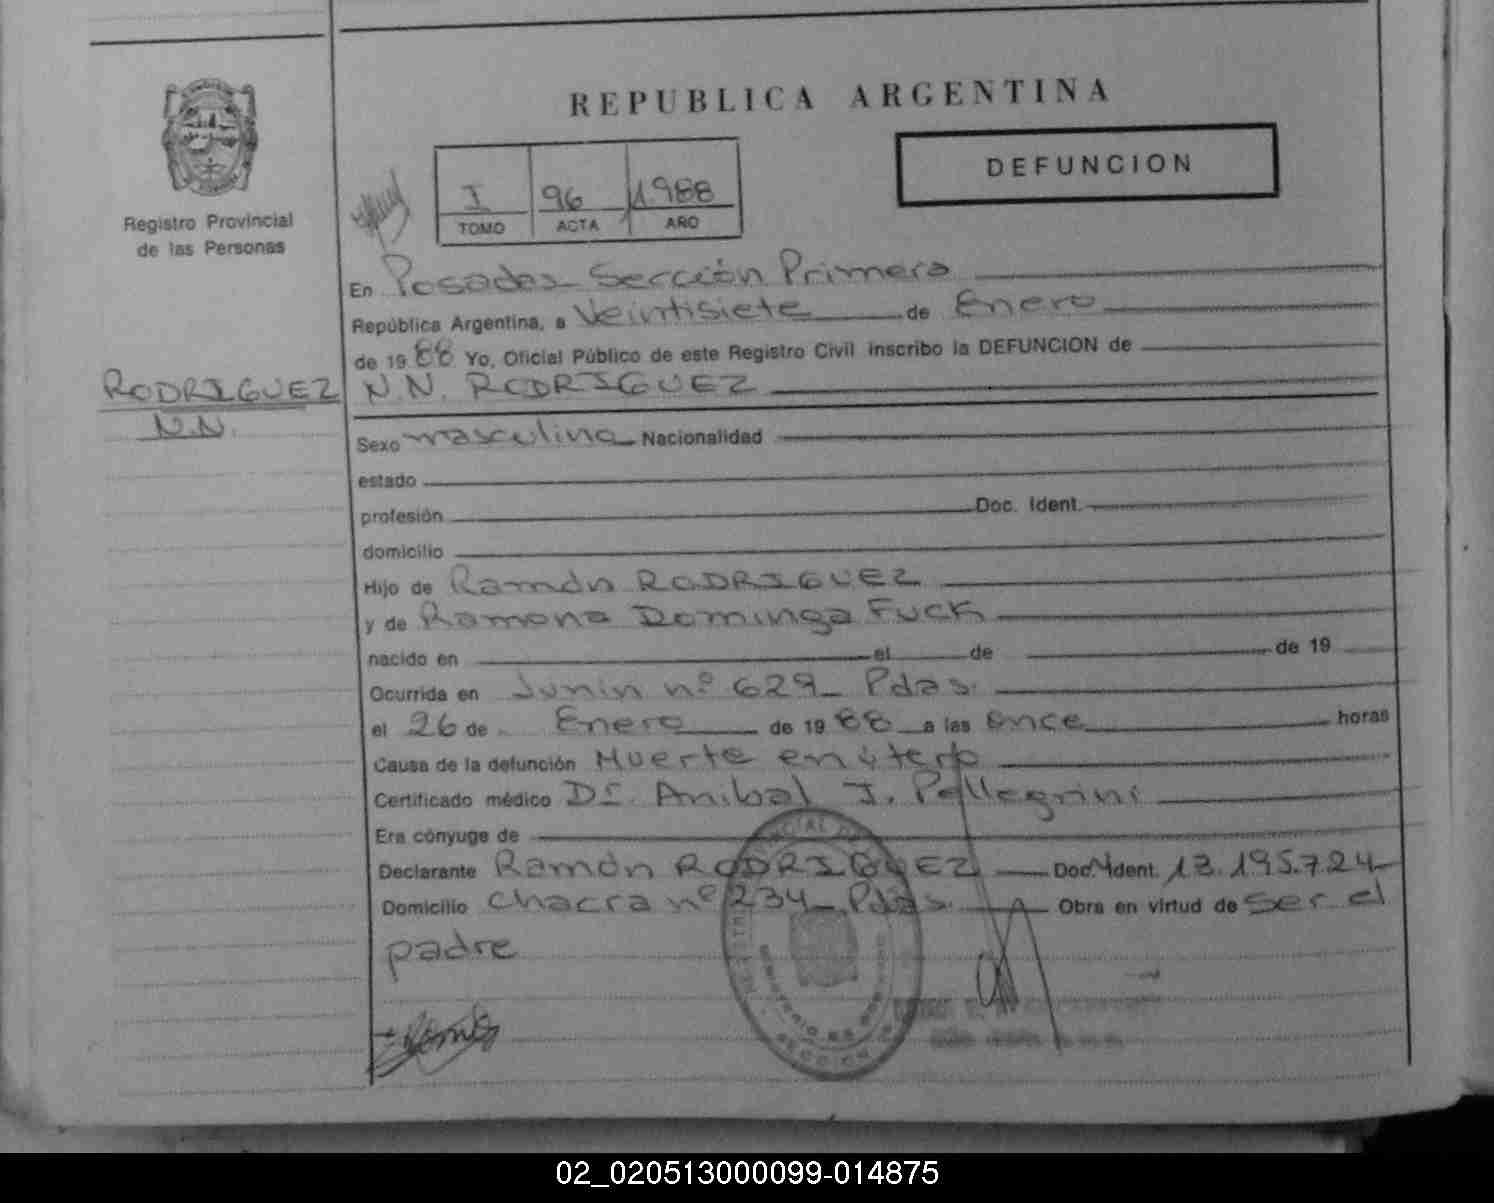 REPUBLICA ARGENTINA
DEFUNCION
I 96 1.988
TOMO ACTA AÑO
Registro Provincial
de las Personas
En Posadas Sección Primera
República Argentina, a Veintisiete de Enero
de 1988 Yo, Oficial Público de este Registro Civil inscribo la DEFUNCION de
RODRIGUEZ
N.N.
N.N. RODRIGUEZ
Sexo masculino Nacionalidad
estado
profesión Doc. Ident.
domicilio
Hijo de Ramón RODRIGUEZ
y de Ramona Dominga Fuck
nacido en el de de 19
Ocurrida en Junin nº 629 Pdas.
el 26 de Enero de 1988 a las once horas
Causa de la defunción Muerte en útero
Certificado médico Dr. Anibal J. Pellegrini
Era cónyuge de
Declarante Ramón RODRIGUEZ Doc. Ident. 13.195.724
Domicilio Chacra nº 234 Pdas. Obra en virtud de ser el
padre
02_020513000099-014875